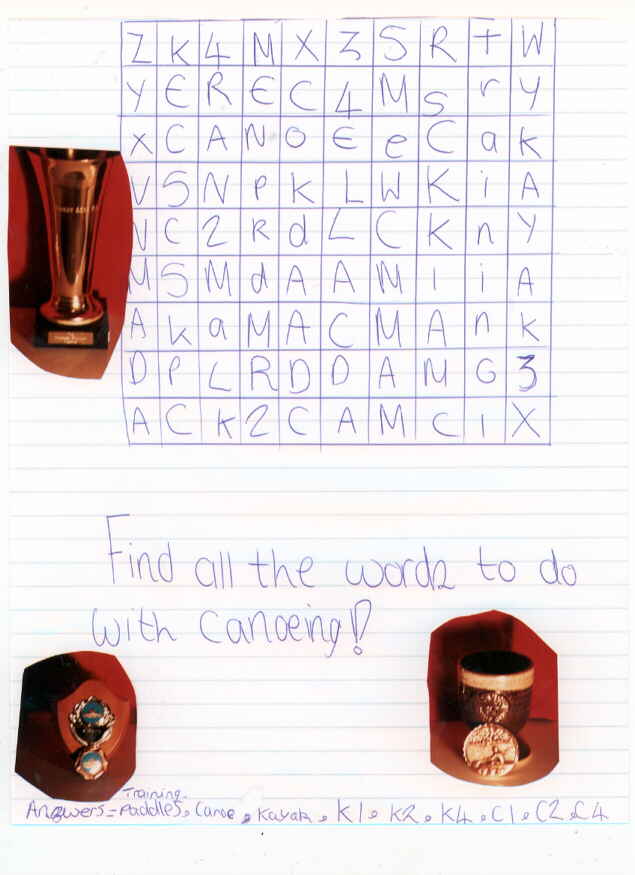 Z K 4 M X 3 S R t W
Y E R E C 4 M S r Y
X C A N O E e C a K
V S N P K L W K i A
N C 2 R d L C K n Y
M S M d A A M I i A
A K a M A C M A n K
D P L R D D A M G 3
A C K 2 C A M C I X
Find all the words to do
with canoeing!
Training.
Answers = Paddles, Canoe, Kayak, K1, K2, K4, C1, C2, C4